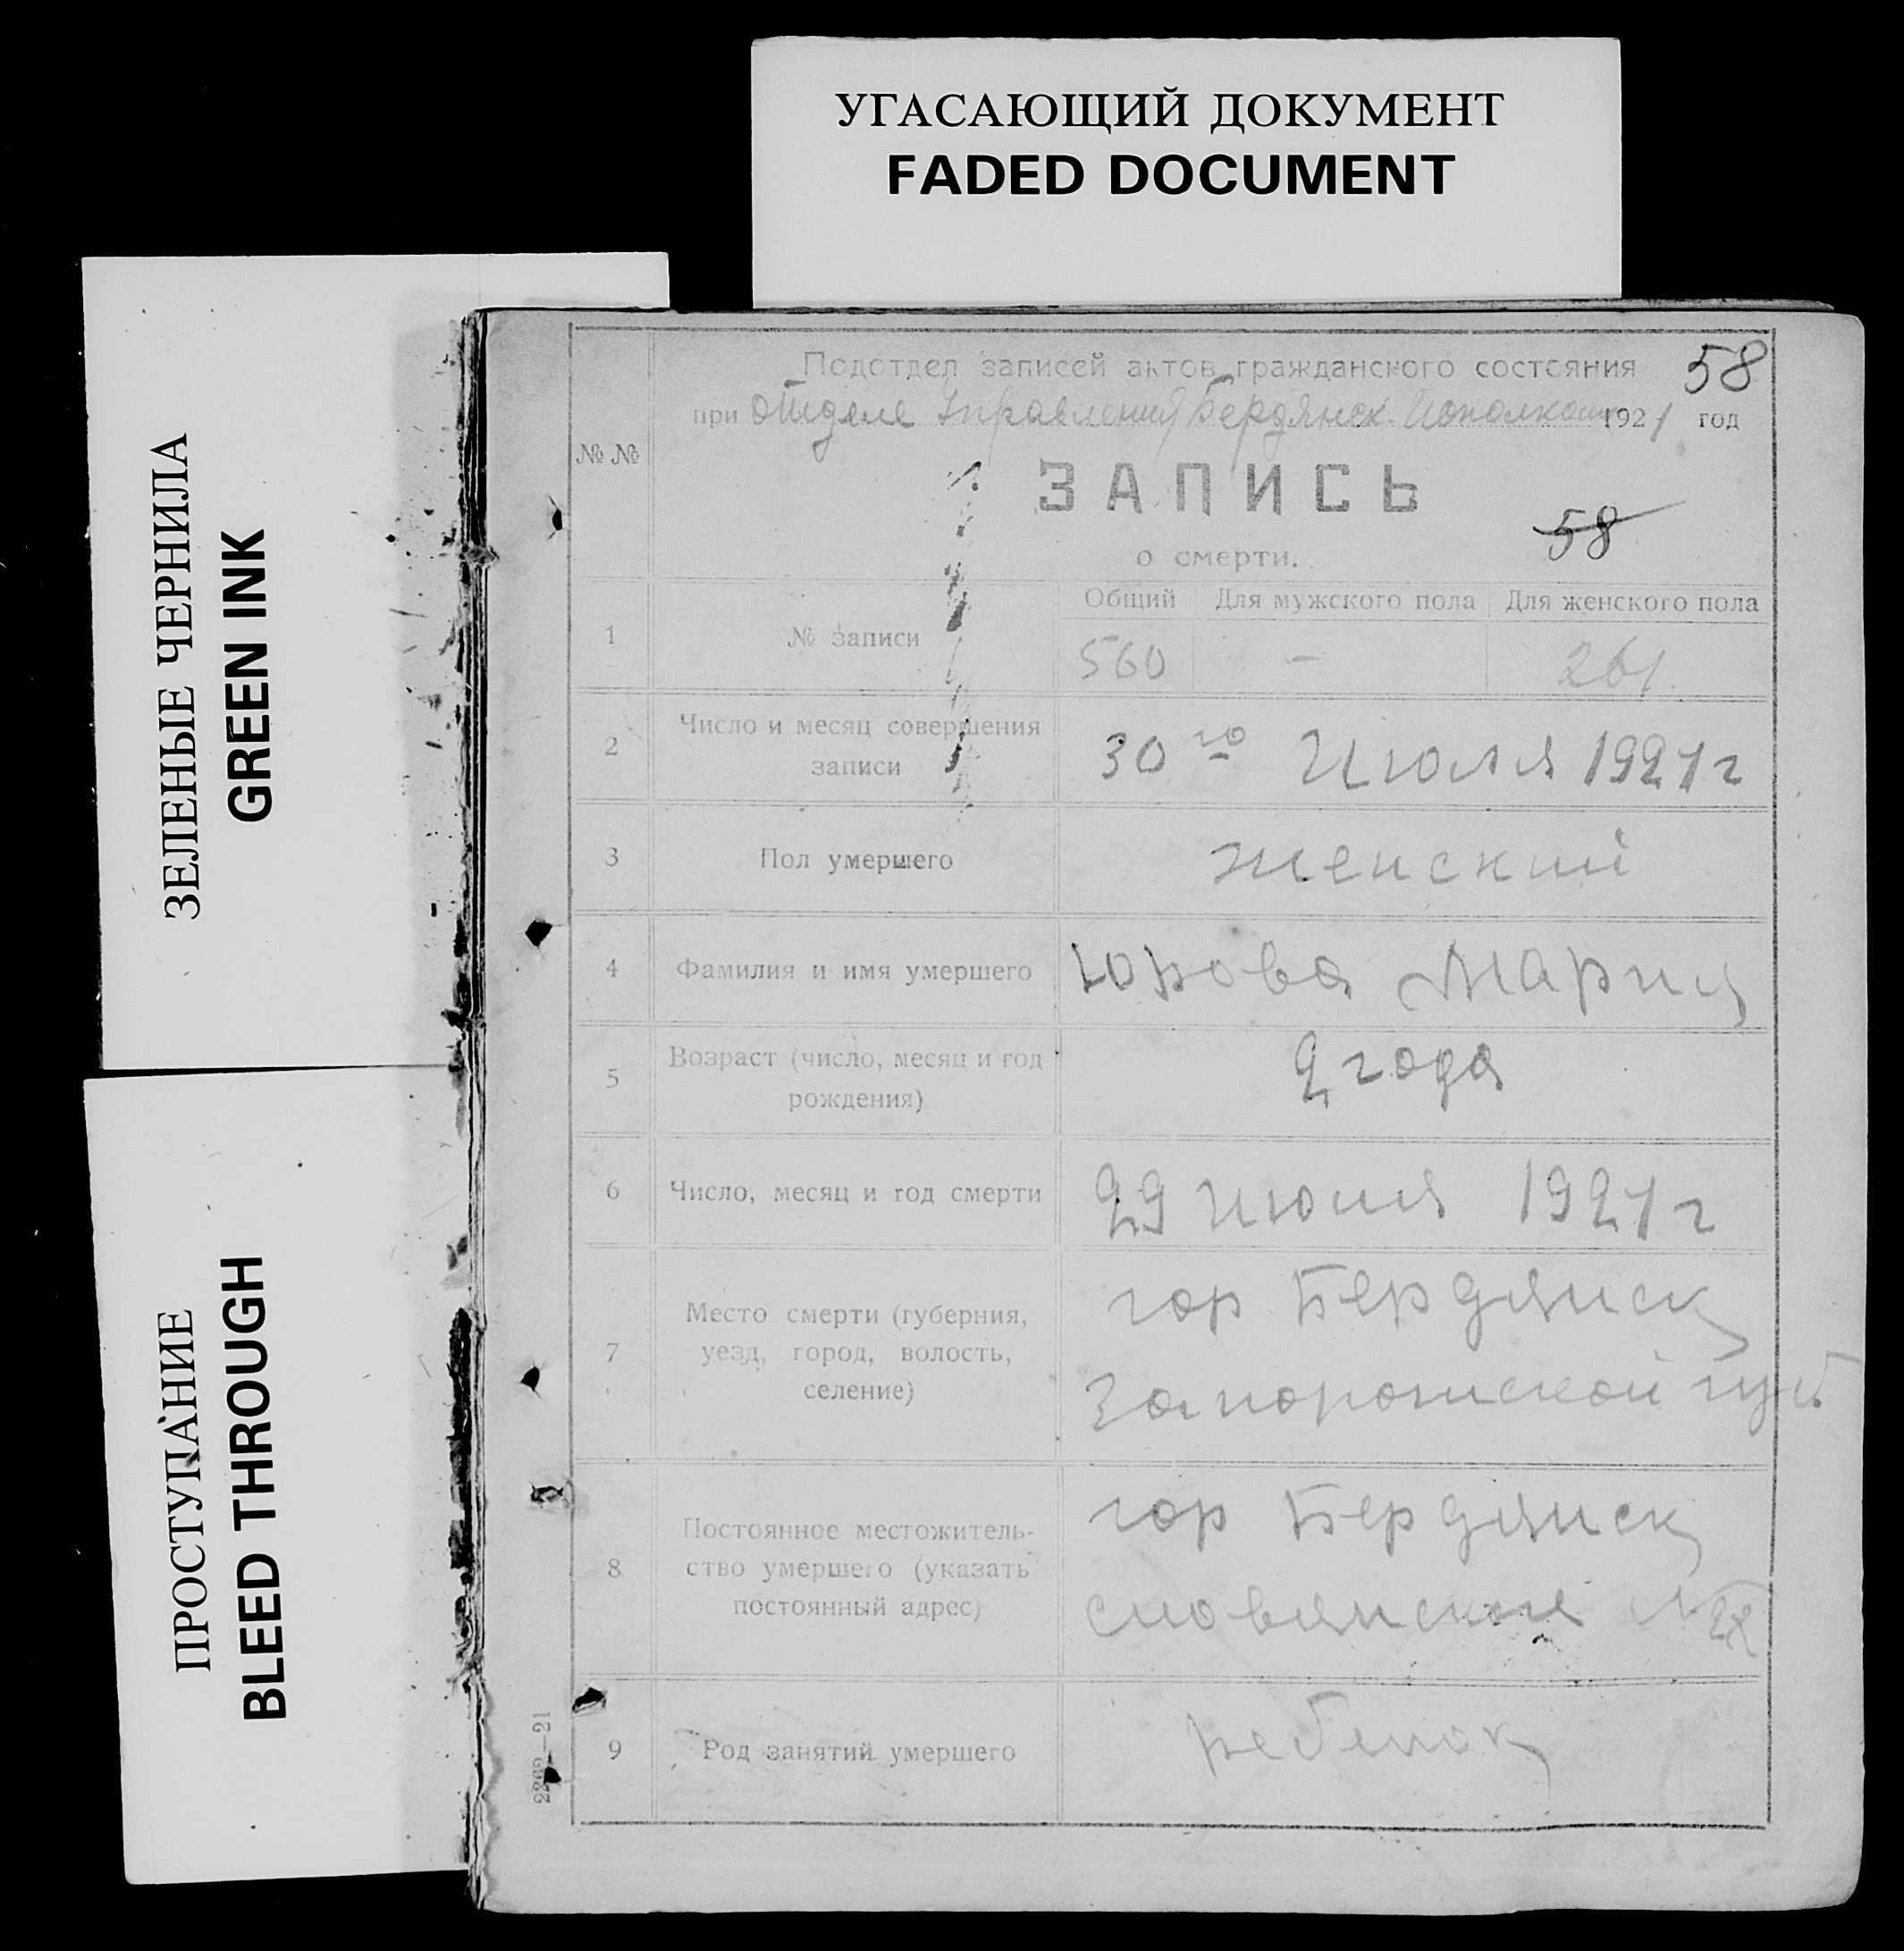 УГАСАЮЩИЙ ДОКУМЕНТ
FADED DOCUMENT
ЗЕЛЕНЫЕ ЧЕРНИЛА
GREEN INK
ПРОСТУПАНИЕ
BLEED THROUGH
58
Подотдел записей актов гражданского состояния
при отделе Управления Бердянск. Исполкома 1921 год
№ №
ЗАПИСЬ
58
о смерти.
Общий Для мужского пола Для женского пола
1 № записи 560 - 261.
2 Число и месяц совершения
записи
30го Июля 1921 г
3 Пол умершего женский
4 Фамилия и имя умершего Юрова Мария
5 Возраст (число, месяц и год
рождения)
2 года
6 Число, месяц и год смерти 29 июля 1921 г
7 Место смерти (губерния,
уезд, город, волость,
селение)
гор Бердянск
Запорожской губ
8 Постоянное местожитель-
ство умершего (указать
постоянный адрес)
гор Бердянск
9 Род занятий умершего ребенок